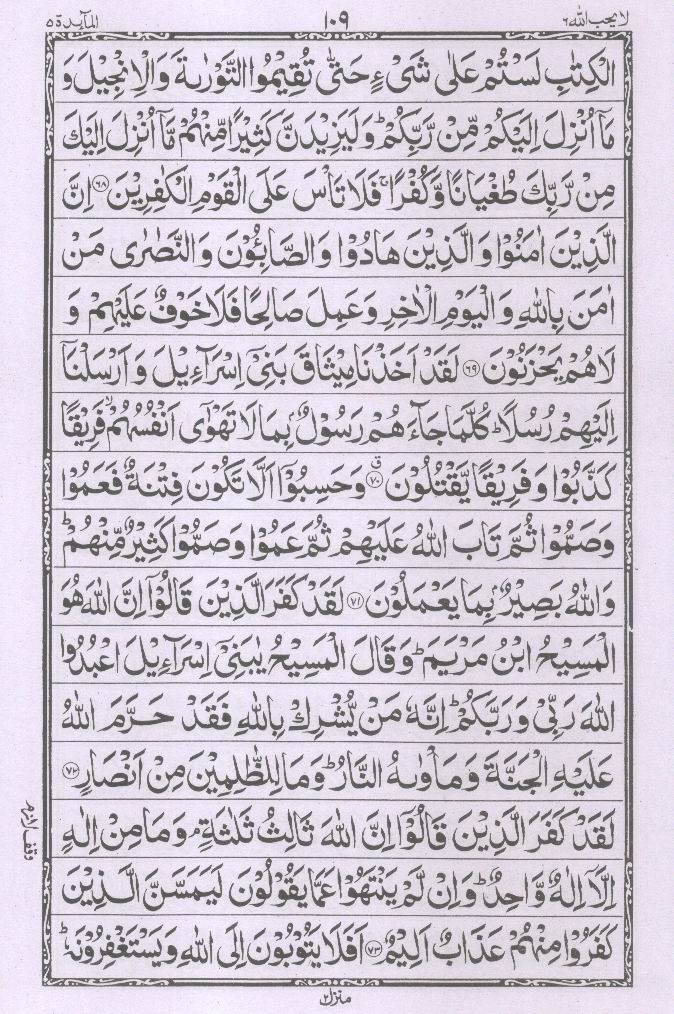 لا یحب الله ٦
١٠٩
المآئدة ٥
الْكِتٰبِ لَسْتُمْ عَلٰى شَىْءٍ حَتّٰى تُقِيْمُوا التَّوْرٰىةَ وَالْاِنْجِيْلَ وَ
مَآ اُنْزِلَ اِلَيْكُمْ مِّنْ رَّبِّكُمْ ؕ وَلَيَزِيْدَنَّ كَثِيْرًا مِّنْهُمْ مَّآ اُنْزِلَ اِلَيْكَ
مِنْ رَّبِّكَ طُغْيَانًا وَّكُفْرًا ۚ فَلَا تَاْسَ عَلَى الْقَوْمِ الْكٰفِرِيْنَ ﴿٦٨﴾ اِنَّ
الَّذِيْنَ اٰمَنُوْا وَالَّذِيْنَ هَادُوْا وَالصَّابِـُٔوْنَ وَالنَّصٰرٰى مَنْ
اٰمَنَ بِاللّٰهِ وَالْيَوْمِ الْاٰخِرِ وَعَمِلَ صَالِحًا فَلَا خَوْفٌ عَلَيْهِمْ وَ
لَا هُمْ يَحْزَنُوْنَ ﴿٦٩﴾ لَقَدْ اَخَذْنَا مِيْثَاقَ بَنِىْٓ اِسْرَآءِيْلَ وَاَرْسَلْنَآ
اِلَيْهِمْ رُسُلًا ؕ كُلَّمَا جَآءَهُمْ رَسُوْلٌۢ بِمَا لَا تَهْوٰٓى اَنْفُسُهُمْ ۙ فَرِيْقًا
كَذَّبُوْا وَفَرِيْقًا يَّقْتُلُوْنَ ﴿٧٠﴾ ق وَحَسِبُوْٓا اَلَّا تَكُوْنَ فِتْنَةٌ فَعَمُوْا
وَصَمُّوْا ثُمَّ تَابَ اللّٰهُ عَلَيْهِمْ ثُمَّ عَمُوْا وَصَمُّوْا كَثِيْرٌ مِّنْهُمْ ؕ
وَاللّٰهُ بَصِيْرٌۢ بِمَا يَعْمَلُوْنَ ﴿٧١﴾ لَقَدْ كَفَرَ الَّذِيْنَ قَالُوْٓا اِنَّ اللّٰهَ هُوَ
الْمَسِيْحُ ابْنُ مَرْيَمَ ؕ وَقَالَ الْمَسِيْحُ يٰبَنِىْٓ اِسْرَآءِيْلَ اعْبُدُوا
اللّٰهَ رَبِّىْ وَرَبَّكُمْ ؕ اِنَّهٗ مَنْ يُّشْرِكْ بِاللّٰهِ فَقَدْ حَرَّمَ اللّٰهُ
عَلَيْهِ الْجَنَّةَ وَمَاْوٰىهُ النَّارُ ؕ وَمَا لِلظّٰلِمِيْنَ مِنْ اَنْصَارٍ ﴿٧٢﴾
لَقَدْ كَفَرَ الَّذِيْنَ قَالُوْٓا اِنَّ اللّٰهَ ثَالِثُ ثَلٰثَةٍ ۘ وَمَا مِنْ اِلٰهٍ
اِلَّآ اِلٰهٌ وَّاحِدٌ ؕ وَاِنْ لَّمْ يَنْتَهُوْا عَمَّا يَقُوْلُوْنَ لَيَمَسَّنَّ الَّذِيْنَ
كَفَرُوْا مِنْهُمْ عَذَابٌ اَلِيْمٌ ﴿٧٣﴾ اَفَلَا يَتُوْبُوْنَ اِلَى اللّٰهِ وَيَسْتَغْفِرُوْنَهٗ ؕ
وقف لازم
منزل ٢